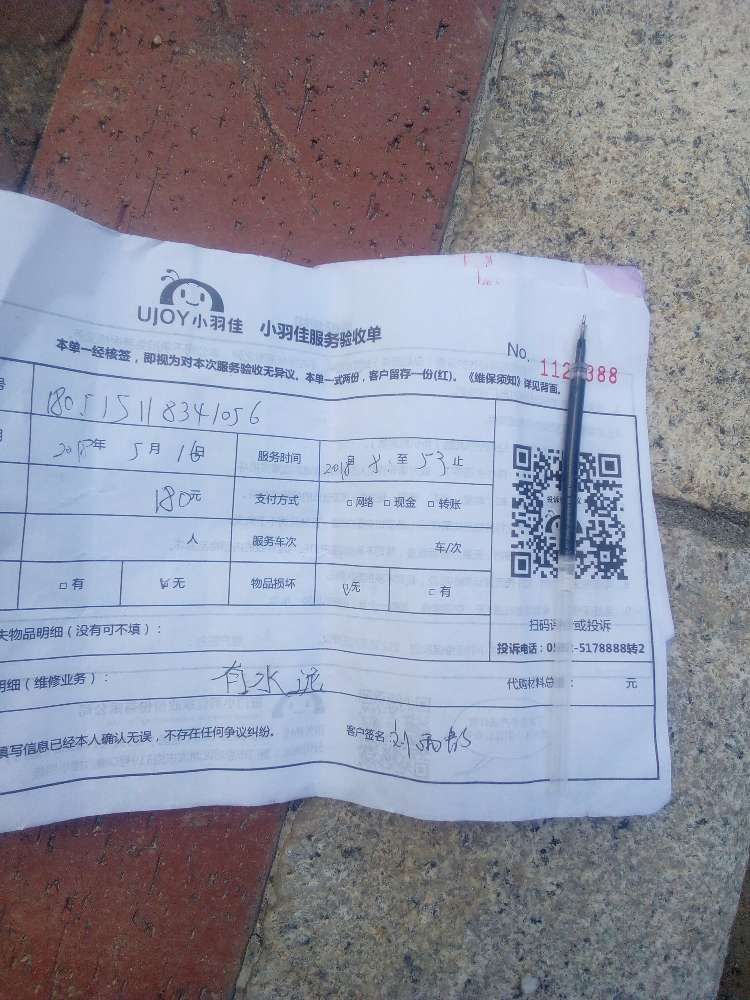 UJOY小羽佳 小羽佳服务验收单
本单一经核签，即视为对本次服务验收无异议。本单一式两份，客户留存一份(红)。《维保须知》详见背面。
No. 112 388
号 180515118341056
2018年 5月 16日 服务时间 2018 8: 至 53 止
180元 支付方式 □网络 □现金 □转账
人 服务车次 车/次
□有 无 物品损坏 无 □有
失物品明细（没有可不填）：
扫码评 或投诉
投诉电话：05 2-5178888转2
明细（维修业务）： 有水 代购材料总 ： 元
填写信息已经本人确认无误，不存在任何争议纠纷。 客户签名：